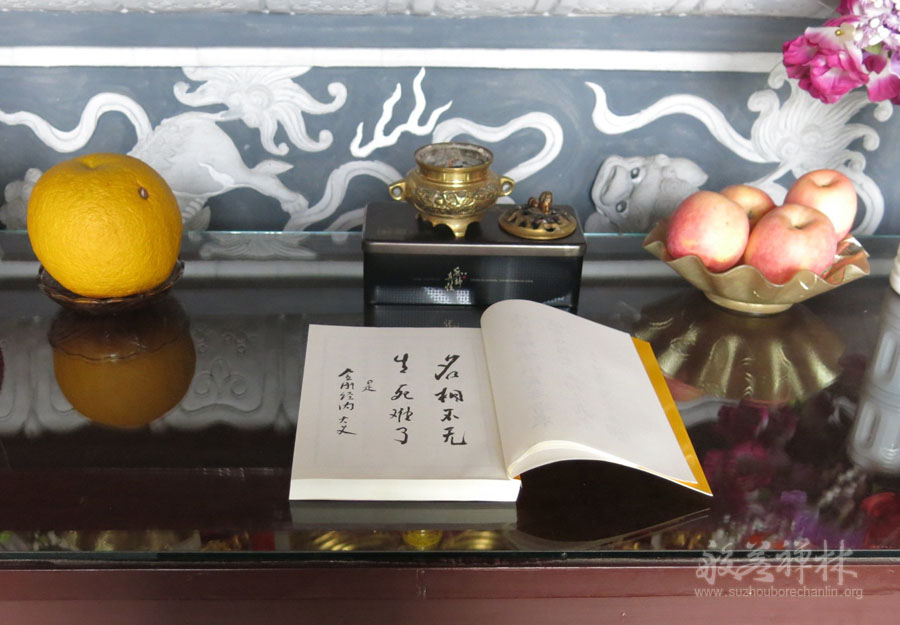 名相不无
生死难了
是
金刚经内大义
般若禅林
www.suzhouborechanlin.org